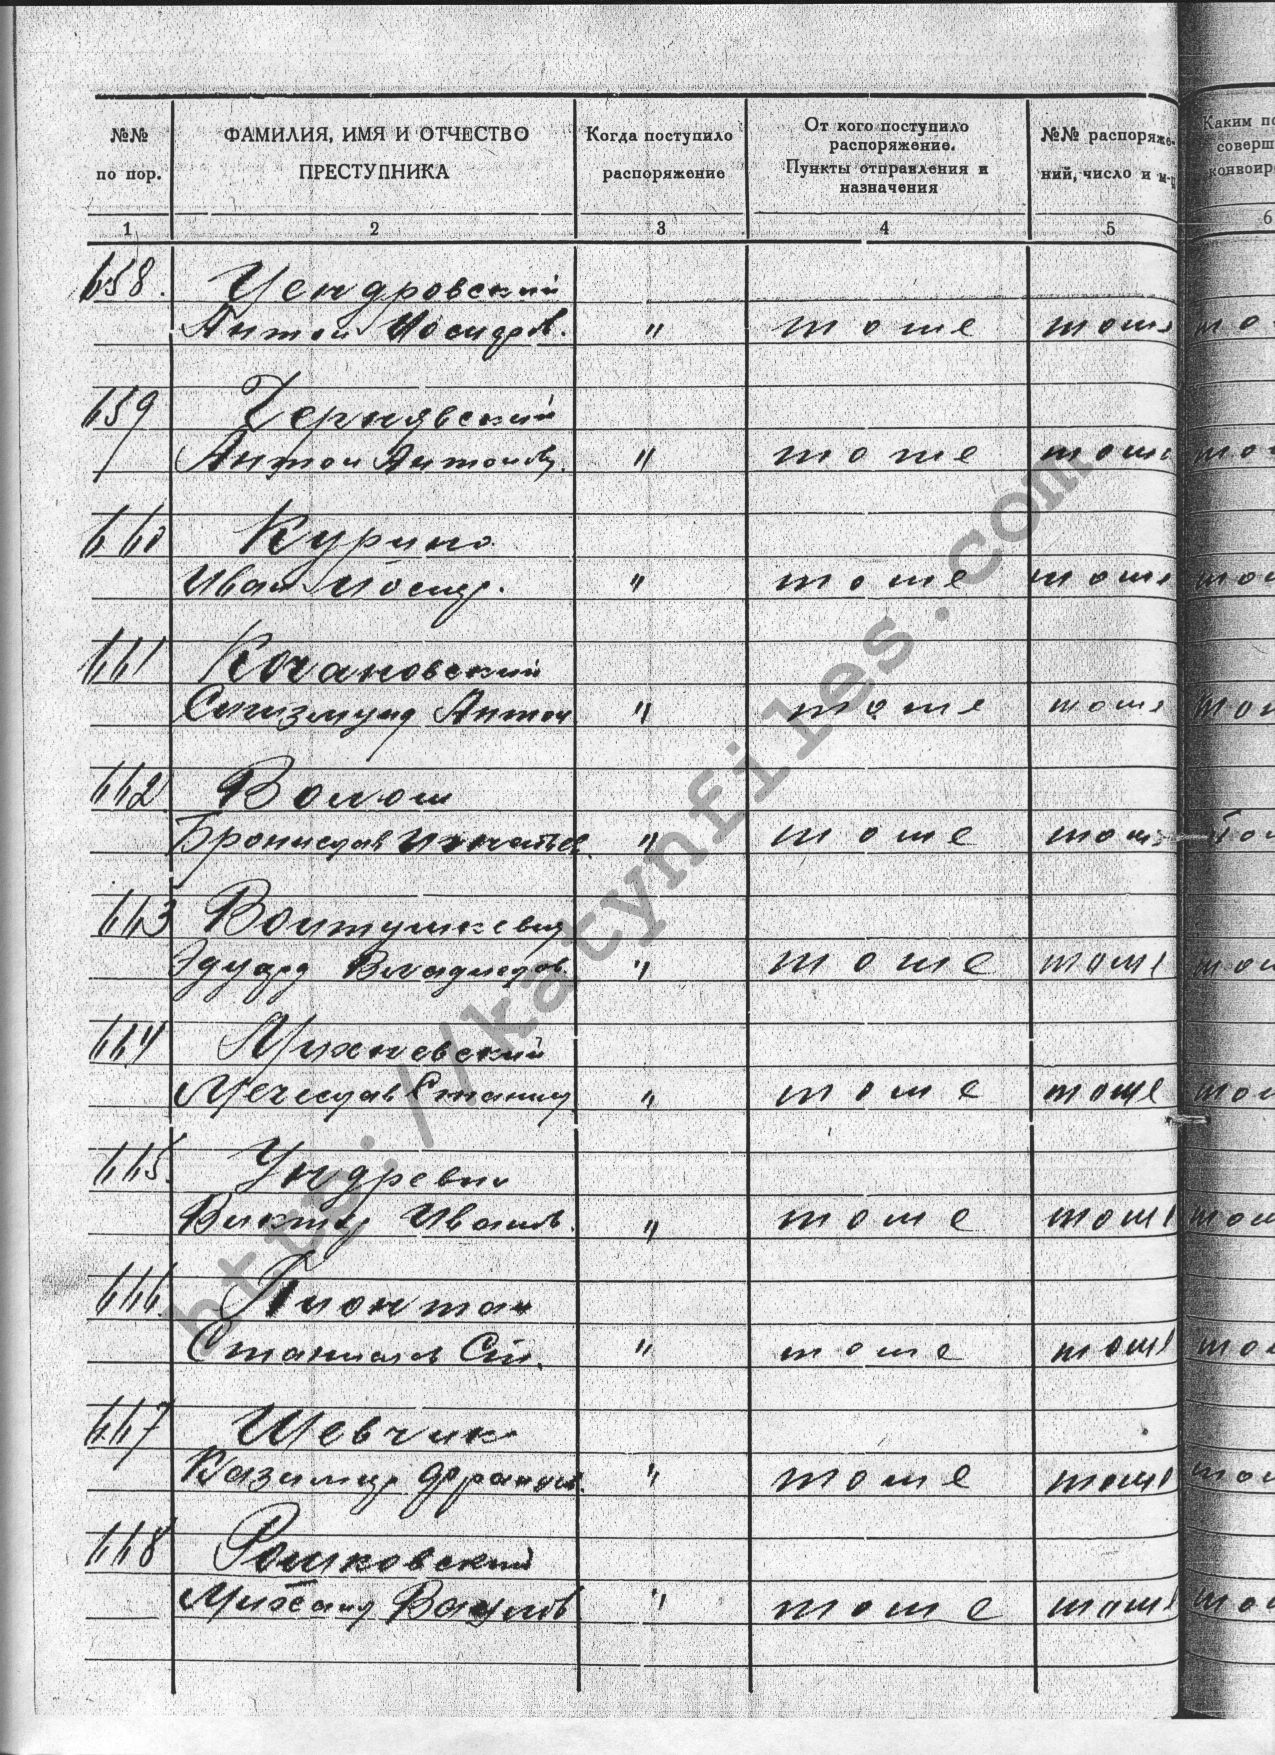 №№
по пор.
ФАМИЛИЯ, ИМЯ И ОТЧЕСТВО
ПРЕСТУПНИКА
Когда поступило
распоряжение
От кого поступило
распоряжение.
Пункты отправления и
назначения
№№ распоряже-
ний, число и м-ц
Каким по
соверш
конвоир
1 2 3 4 5 6
658. Цендровский
Антон Иосифов. " тоже тоже то
659 Чернявский
Антон Антонов. " тоже тоже то
660 Курипо
Иван Иосиф. " тоже тоже то
661 Кочановский
Сигизмунд Антон " тоже тоже то
662 Волош
Бронислав Игнатьев. " тоже тоже то
663 Войтушкевич
Эдуард Владиславов. " тоже тоже то
664 Михневский
Мечеслав Станисл " тоже тоже то
665. Ундревич
Виктор Иванов. " тоже тоже то
666 Пионтак
Станислав Ст. " тоже тоже то
667 Шевчик
Казимир Францев. " тоже тоже то
668 Рошковский
Михаил " тоже тоже то
http://katynfiles.com